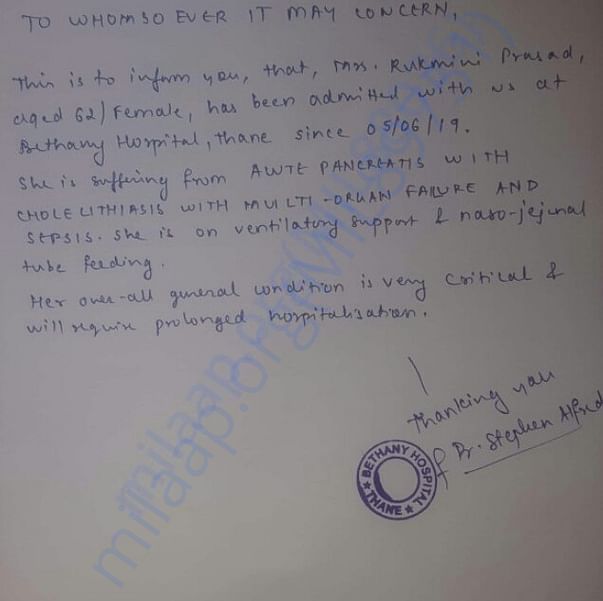 TO WHOMSO EVER IT MAY CONCERN,
This is to inform you, that, Mrs. Rukmini Prasad,
aged 62/Female, has been admitted with us at
Bethany Hospital, Thane since 05/06/19.
She is suffering from ACUTE PANCREATIS WITH
CHOLELITHIASIS WITH MULTI-ORGAN FAILURE AND
SEPSIS. She is on ventilatory support & naso-jejunal
tube feeding.
Her over-all general condition is very critical &
will require prolonged hospitalisation.
Thanking you
Dr. Stephen Alfred
BETHANY HOSPITAL
★ THANE ★
milaap.org
milaap.org